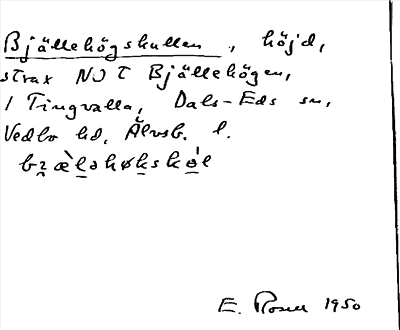 Bjällehögskullen, höjd,
strax NO T Bjällehögen,
/ Tingvalla, Dals-Eds sn,
Vedbo hd, Älvsb. l.
E. Rosell 1950